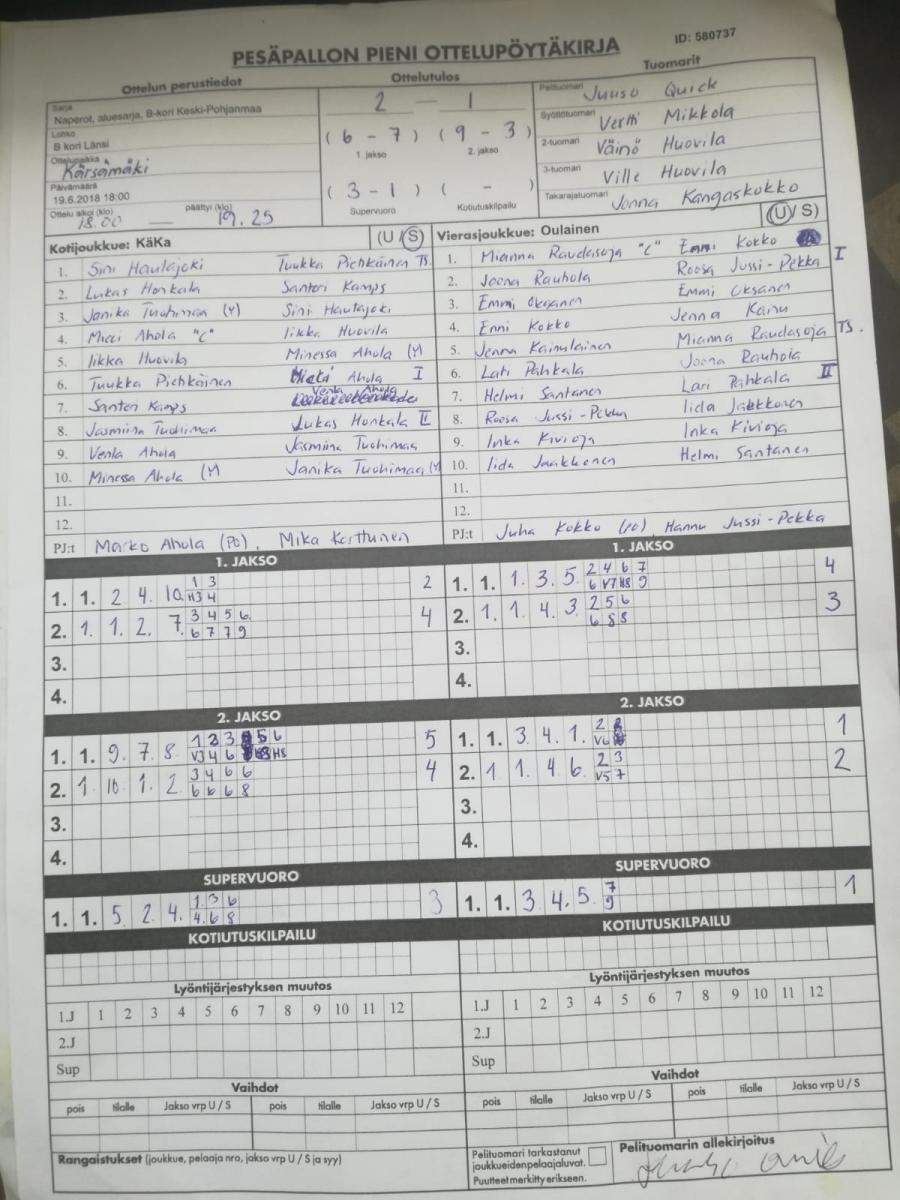 PESÄPALLON PIENI OTTELUPÖYTÄKIRJA
ID: 580737
Ottelun perustiedot
Sarja
Naperot, aluesarja, B-kori Keski-Pohjanmaa
Lohko
B kori Länsi
Ottelupaikka
Kärsämäki
Päivämäärä
19.6.2018 18:00
Ottelu alkoi (klo) päättyi (klo)
18.00 — 19.25
Ottelutulos
2 — 1
(6 - 7) (9 - 3)
1. jakso 2. jakso
(3 - 1) ( - )
Supervuoro Kotiutuskilpailu
Tuomarit
Pelituomari Juuso Quick
Syöttötuomari Vertti Mikkola
2-tuomari Väinö Huovila
3-tuomari Ville Huovila
Takarajatuomari Jonna Kangaskokko
Kotijoukkue: KäKa (U / S)
1. Sini Hautajoki Tuukka Piehkäinen TS.
2. Lukas Honkala Santeri Kamps
3. Janika Tuohimaa (Y) Sini Hautajoki
4. Micci Ahola "C" Iikka Huovila
5. Iikka Huovila Minessa Ahola (Y)
6. Tuukka Piehkäinen Ahola I
7. Santeri Kamps Venla Ahola
8. Jasmiina Tuohimaa Lukas Honkala II
9. Venla Ahola Jasmiina Tuohimaa
10. Minessa Ahola (Y) Janika Tuohimaa (Y)
11.
12.
PJ:t Marko Ahola (PO), Mika Korttunen
Vierasjoukkue: Oulainen (U / S)
1. Mianna Raudasoja "C" Enni Kokko
2. Joona Rauhola Roosa Jussi-Pekka I
3. Emmi Oksanen Emmi Oksanen
4. Enni Kokko Jenna Kainu
5. Jenna Kainulainen Mianna Raudasoja TS.
6. Lari Pahkala Joona Rauhola
7. Helmi Santanen Lari Pahkala II
8. Roosa Jussi-Pekka Iida Jaakkonen
9. Inka Kivioja Inka Kivioja
10. Iida Jaakkonen Helmi Santanen
11.
12.
PJ:t Juha Kokko (PO) Hannu Jussi-Pekka
1. JAKSO
1. 1. 2 4. 10. 1 3 2
H3 4
2. 1. 1. 2. 7. 3 4 5 6. 4
6 7 7 9
3.
4.
1. JAKSO
1. 1. 1. 3. 5. 2 4 6 7 4
6 V7 H8 9
2. 1. 1. 4. 3. 2 5 6 3
6 8 8
3.
4.
2. JAKSO
1. 1. 9. 7. 8. 1 3 3 5 6 5
V3 4 6 H8
2. 1. 10. 1. 2. 3 4 6 6 4
6 6 6 8
3.
4.
2. JAKSO
1. 1. 3. 4. 1. 2 1
V6
2. 1 1. 4 6. 2 3 2
V5 7
3.
4.
SUPERVUORO
1. 1. 5 2. 4. 1. 3 6 3
4. 6 8
SUPERVUORO
1. 1. 3. 4. 5. 7 1
9
KOTIUTUSKILPAILU
KOTIUTUSKILPAILU
Lyöntijärjestyksen muutos
1.J 1 2 3 4 5 6 7 8 9 10 11 12
2.J
Sup
Lyöntijärjestyksen muutos
1.J 1 2 3 4 5 6 7 8 9 10 11 12
2.J
Sup
Vaihdot
pois tilalle Jakso vrp U / S pois tilalle Jakso vrp U / S
Vaihdot
pois tilalle Jakso vrp U / S pois tilalle Jakso vrp U / S
Rangaistukset (joukkue, pelaaja nro, jakso vrp U / S ja syy)
Pelituomari tarkastanut
joukkueidenpelaajaluvat.
Puutteet merkitty erikseen.
Pelituomarin allekirjoitus